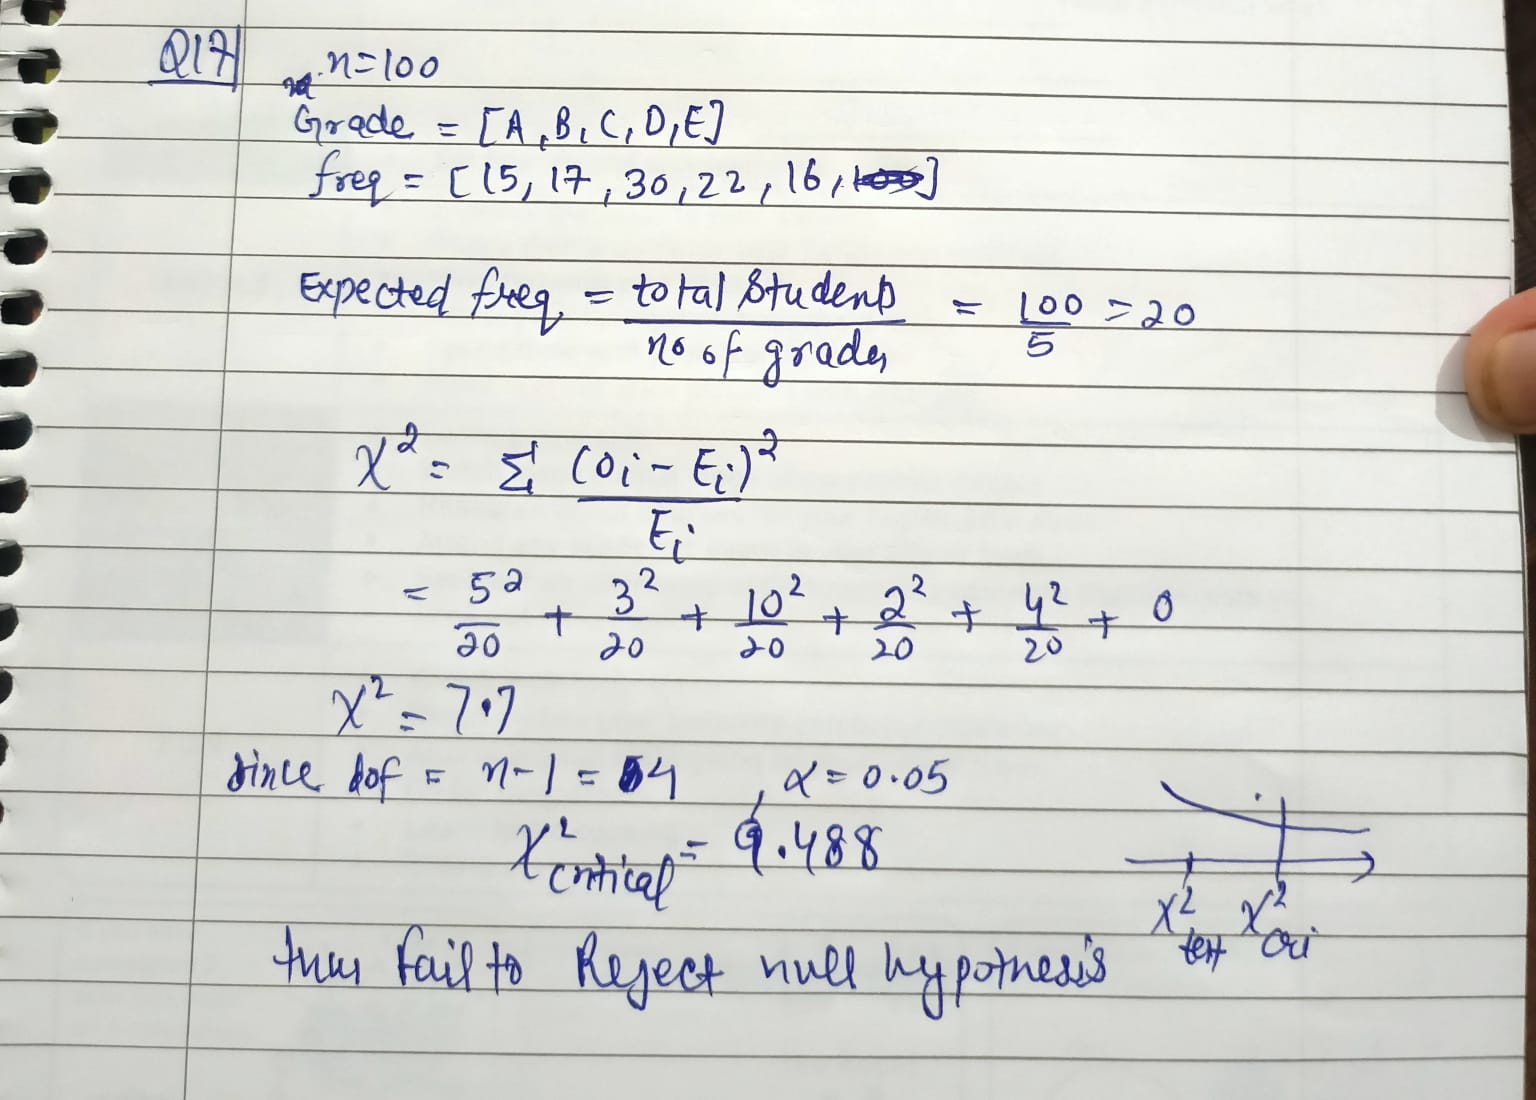 Q17
n=100
Grade = [A, B, C, D, E]
freq = [15, 17, 30, 22, 16, 100]
Expected freq = total Students / no of grades = 100/5 = 20
χ² = Σ (Oi - Ei)² / Ei
= 5²/20 + 3²/20 + 10²/20 + 2²/20 + 4²/20 + 0
χ² = 7.7
Since dof = n-1 = 4, α = 0.05
χ² critical = 9.488
χ² test χ² cri
thus fail to Reject null hypothesis